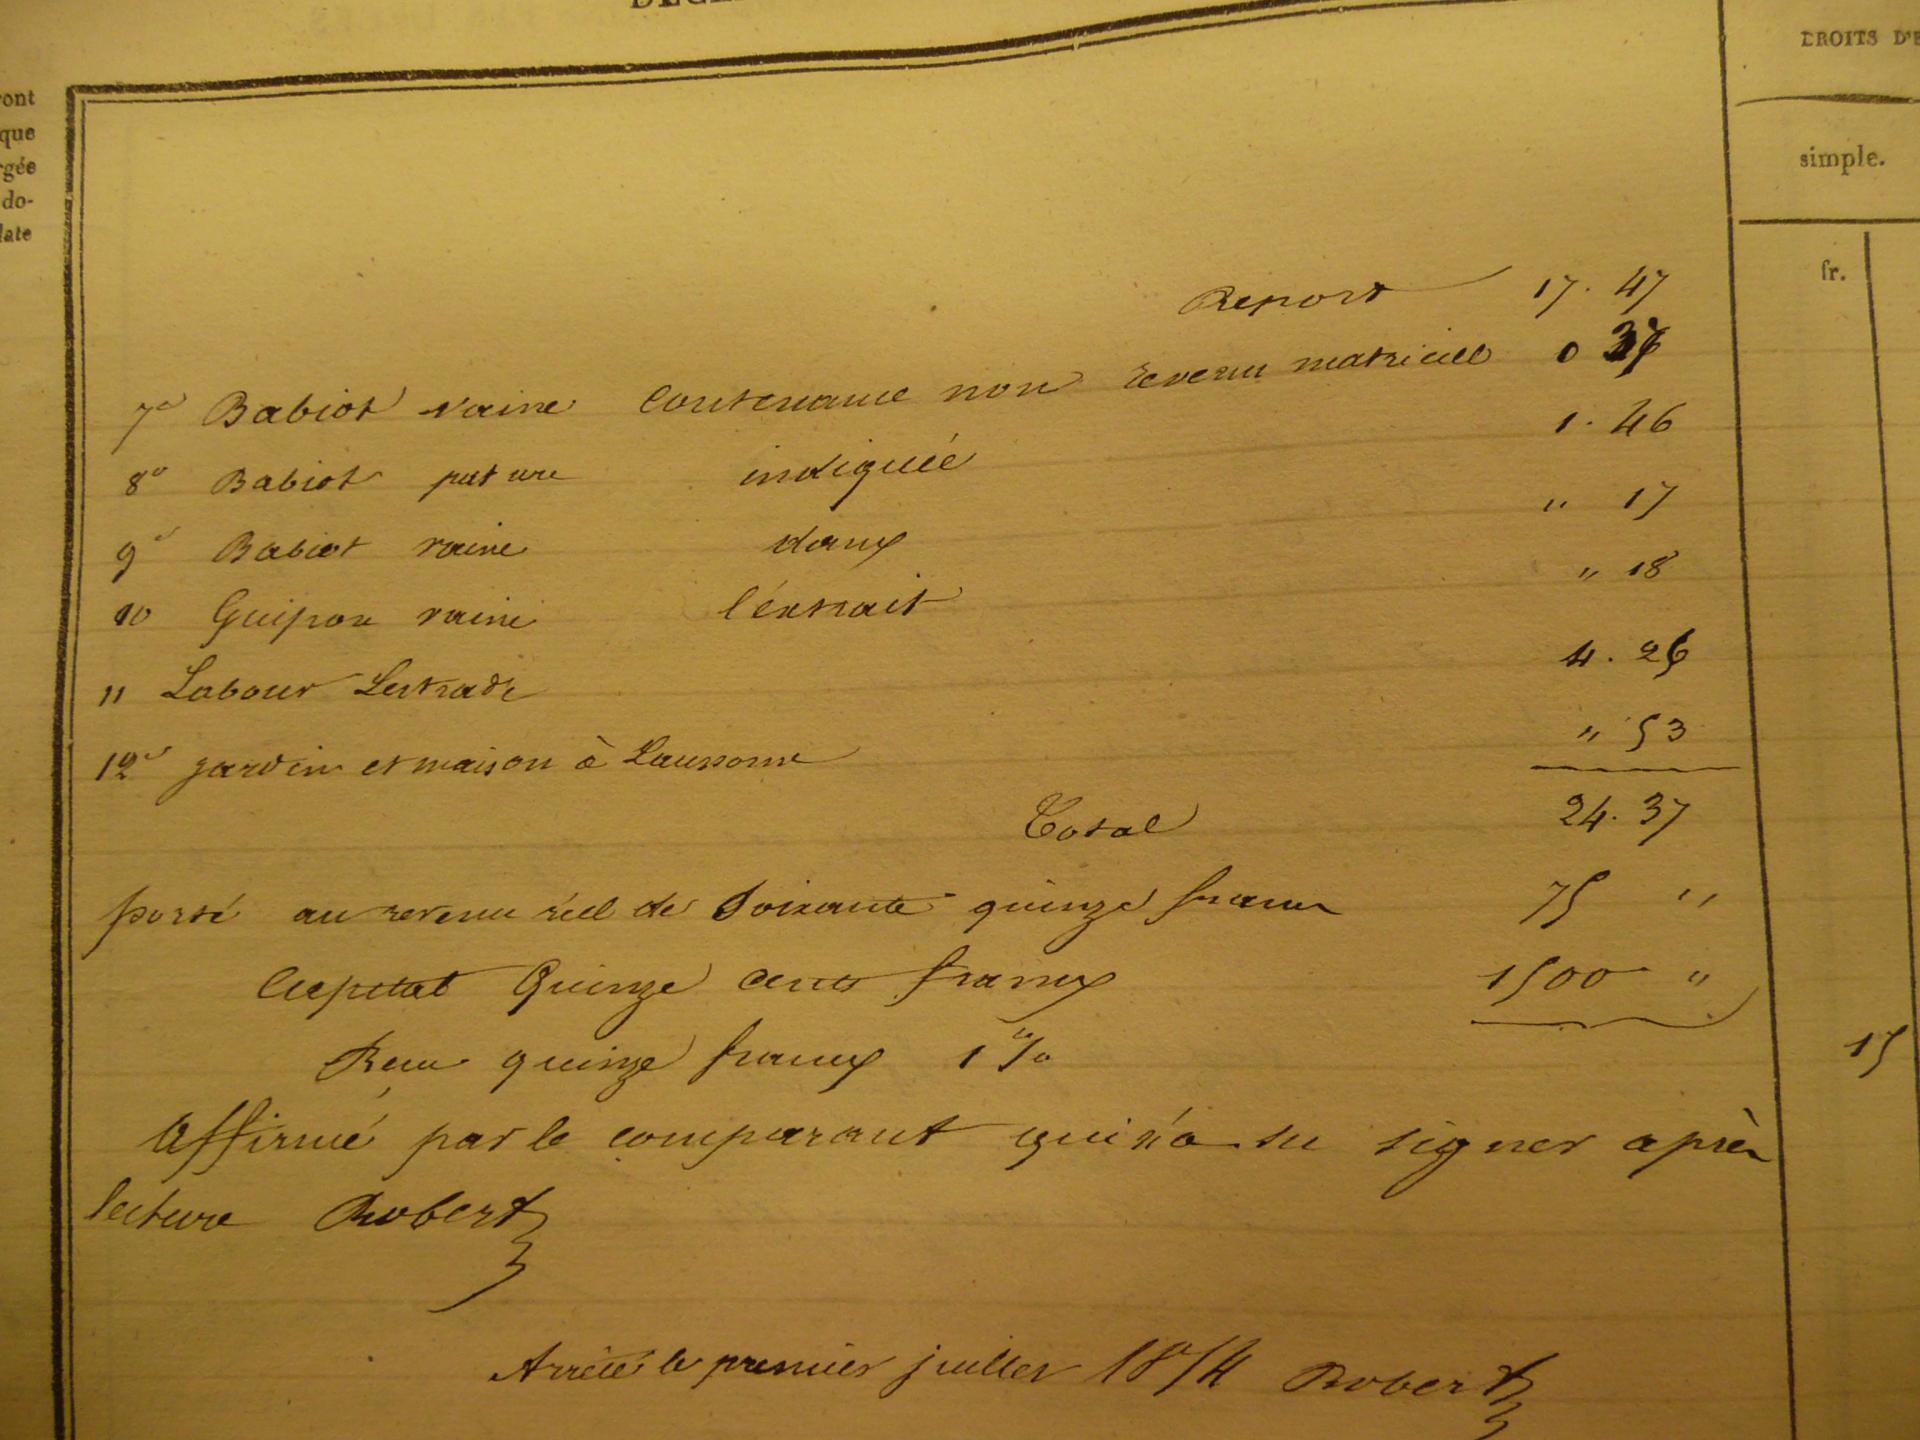 DROITS D'E
ront
que
rgée
do-
date
simple.
fr.
Report 17. 47
7° Babiot vaine Contenance non revenu matriciel 0 36
8° Babiot pature indiquée 1. 46
9° Babiot vaine dans " 17
10 Guipon vaine l'extrait " 18
11 Labour Lestrade 4. 26
12° jardin et maison à Laussonne " 53
Total 24. 37
porté au revenu réel de Soixante quinze francs 75 "
Capital Quinze cents francs 1500 "
Reçu quinze francs 1 % 15
Affirmé par le comparant qui n'a su signer après
lecture Robert
Arrêté le premier juillet 1874 Robert